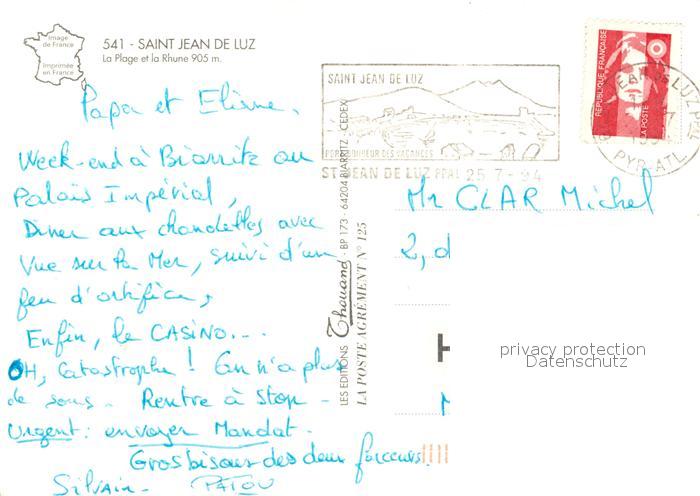 Image
de France
Imprimée
en France
541 - SAINT JEAN DE LUZ
La Plage et la Rhune 905 m.
Papa et Eliane.
Week-end à Biarritz au
Palais Impérial,
Diner aux chandelles avec
Vue sur la Mer, suivi d'un
feu d'artifice,
Enfin, le CASINO...
OH, Catastrophe ! On n'a plus
de sous. Rentre à Stop -
Urgent : envoyer Mandat.
Gros bisous des deux farceurs.
Silvain - PATOU
LES EDITIONS Thouand - BP 173 - 64204 BIARRITZ - CEDEX
LA POSTE AGRÉMENT N° 125
SAINT JEAN DE LUZ
DES VACANCES
ST JEAN DE LUZ PPAL 25 7 - 94
RÉPUBLIQUE FRANÇAISE
LA POSTE
PYR-ATL
Mr CLAR Michel
2, d
privacy protection
Datenschutz